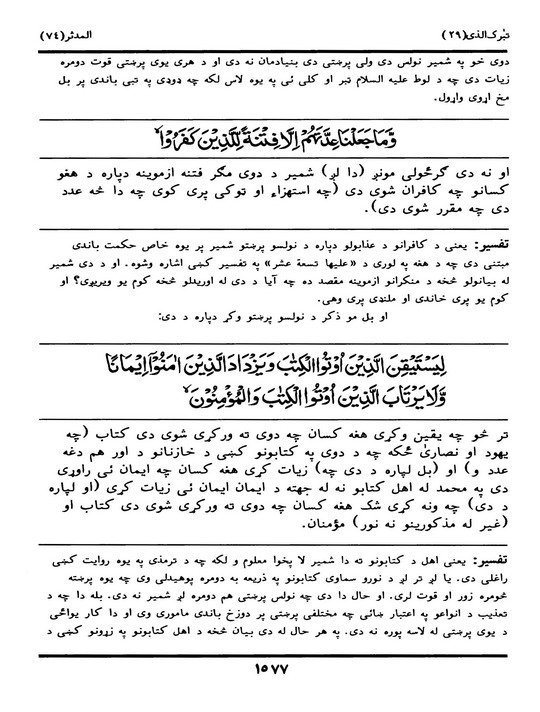 تبٰرک الذی (٢٩) المدثر (٧٤)
دوی خو په شمېر نولس دی ولې پرښتې دی بنیادمان نه دی او د هرې یوې پرښتې قوت دومره
زیات دی چه د لوط علیه السلام ټبر او کلی ئی په یوه لاس لکه چه ډوډۍ په تبې باندې پر بل
مخ اړوی واړول.
وَّمَا جَعَلْنَا عِدَّتَهُمْ اِلَّا فِتْنَةً لِّلَّذِيْنَ كَفَرُوْا
او نه دی ګرځولی مونږ (دا لږ) شمیر د دوی مګر فتنه ازموینه دپاره د هغو
کسانو چه کافران شوی دی (چه استهزاء او ټوکی پری کوی چه دا څه عدد
دی چه مقرر شوی دی).
تفسیر: یعنی د کافرانو د عذابولو دپاره د نولسو پرښتو شمیر پر یوه خاص حکمت باندی
مبتنی دی چه د هغه په لوری د «علیها تسعة عشر» په تفسیر کښی اشاره وشوه. او د دی شمیر
له بیانولو څخه د منکرانو ازموینه مقصد ده چه آیا د دی له اوریدلو څخه کوم یو ویریږی؟ او
کوم یو پری خاندی او ملنډی پری وهی.
او بل مو ذکر د نولسو پرښتو وکړ دپاره د دی:
لِيَسْتَيْقِنَ الَّذِيْنَ اُوْتُوا الْكِتٰبَ وَيَزْدَادَ الَّذِيْنَ اٰمَنُوْٓا اِيْمَانًا
وَّلَا يَرْتَابَ الَّذِيْنَ اُوْتُوا الْكِتٰبَ وَالْمُؤْمِنُوْنَ
تر څو چه یقین وکړی هغه کسان چه دوی ته ورکړی شوی دی کتاب (چه
یهود او نصاریٰ ځکه چه د دوی په کتابونو کښی د خازنانو د اور هم دغه
عدد و) او (بل لپاره د دی چه) زیات کړی هغه کسان چه ایمان ئی راوړی
دی په محمد له اهل کتابو نه له جهته د ایمان ایمان ئی زیات کړی (او لپاره
د دی) چه ونه کړی شک هغه کسان چه دوی ته ورکړی شوی دی کتاب او
(غیر له مذکورینو نه نور) مؤمنان.
تفسیر: یعنی اهل د کتابونو ته دا شمیر لا پخوا معلوم و لکه چه د ترمذی په یوه روایت کښی
راغلی دی. یا لږ تر لږ د نورو سماوی کتابونو په ذریعه به دومره پوهیدلی وی چه یوه پرښته
څومره زور او قوت لری. او حال دا دی چه نولس پرښتی هم دومره لږ شمیر نه دی. بله دا چه د
تعذیب د انواعو په اعتبار ښائی چه مختلفی پرښتی پر دوزخ باندی ماموری وی او دا کار یواځی
د یوی پرښتی له لاسه پوره نه دی. په هر حال له دی بیان څخه د اهل کتابونو په زړونو کښی د
١٥٧٧